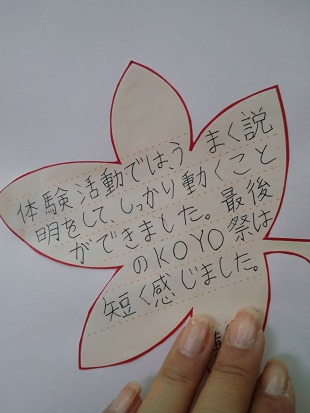 体験活動ではうまく説
明をして、しっかり動くこと
ができました。最後
のKOYO祭は
短く感じました。